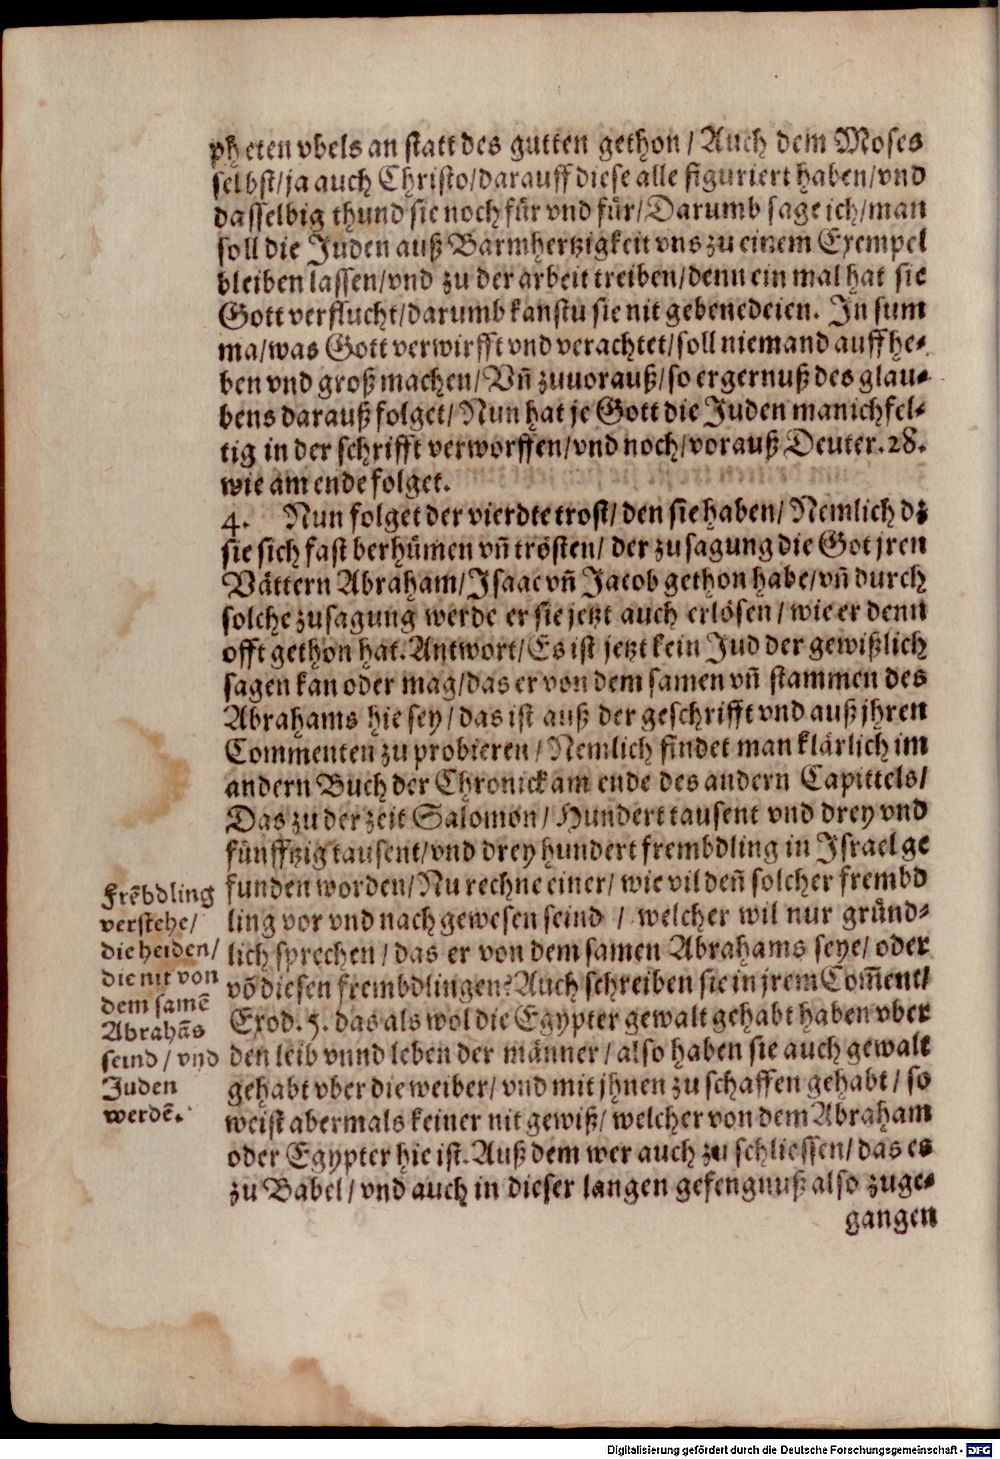 pheten vbels an statt des gutten gethon / Auch dem Moses
selbst/ja auch Christo/darauff diese alle figuriert haben/vnd
dasselbig thund sie noch für vnd für/Darumb sage ich/man
soll die Juden auß Barmhertzigkeit vns zu einem Exempel
bleiben lassen/vnd zu der arbeit treiben/denn ein mal hat sie
Gott verflucht/darumb kanstu sie nit gebenedeien. In sum
ma/was Gott verwirfft vnd verachtet/soll niemand auffhe⸗
ben vnd groß machen/Vñ zuuorauß/so ergernuß des glau⸗
bens darauß folget/Nun hat je Gott die Juden manichfel⸗
tig in der schrifft verworffen/vnd noch/vorauß Deuter. 28.
wie am ende folget.
4. Nun folget der vierdte trost/den sie haben/Nemlich dz
sie sich fast berhümen vñ trösten/der zusagung die Got jren
Vättern Abraham/Isaac vñ Jacob gethon habe/vñ durch
solche zusagung werde er sie jetzt auch erlösen/wie er denn
offt gethon hat. Antwort/Es ist jetzt kein Jud der gewißlich
sagen kan oder mag/das er von dem samen vñ stammen des
Abrahams hie sey/das ist auß der geschrifft vnd auß jhren
Commenten zu probieren/Nemlich findet man klärlich im
andern Buch der Chronick am ende des andern Capittels/
Das zu der zeit Salomon/Hundert tausent vnd drey vnd
fünfftzig tausent/vnd drey hundert frembdling in Israel ge
funden worden/Nu rechne einer/wie vil deñ solcher frembd
ling vor vnd nach gewesen seind / welcher wil nur gründ⸗
lich sprechen/das er von dem samen Abrahams seye/oder
võ diesen frembdlingen? Auch schreiben sie in jrem Com̃ent/
Exod. 5. das als wol die Egypter gewalt gehabt haben vber
den leib vnnd leben der männer/also haben sie auch gewalt
gehabt vber die weiber/vnd mit jhnen zu schaffen gehabt/so
weist abermals keiner nit gewiß/welcher von dem Abraham
oder Egypter hie ist. Auß dem wer auch zu schliessen/das es
zu Babel/vnd auch in dieser langen gefengnuß also zuge⸗
gangen
Frẽbdling
verstehe/
die heiden/
die nit von
dem samẽ
Abrahãs
seind/vnd
Juden
werdẽ.
Digitalisierung gefördert durch die Deutsche Forschungsgemeinschaft - DFG